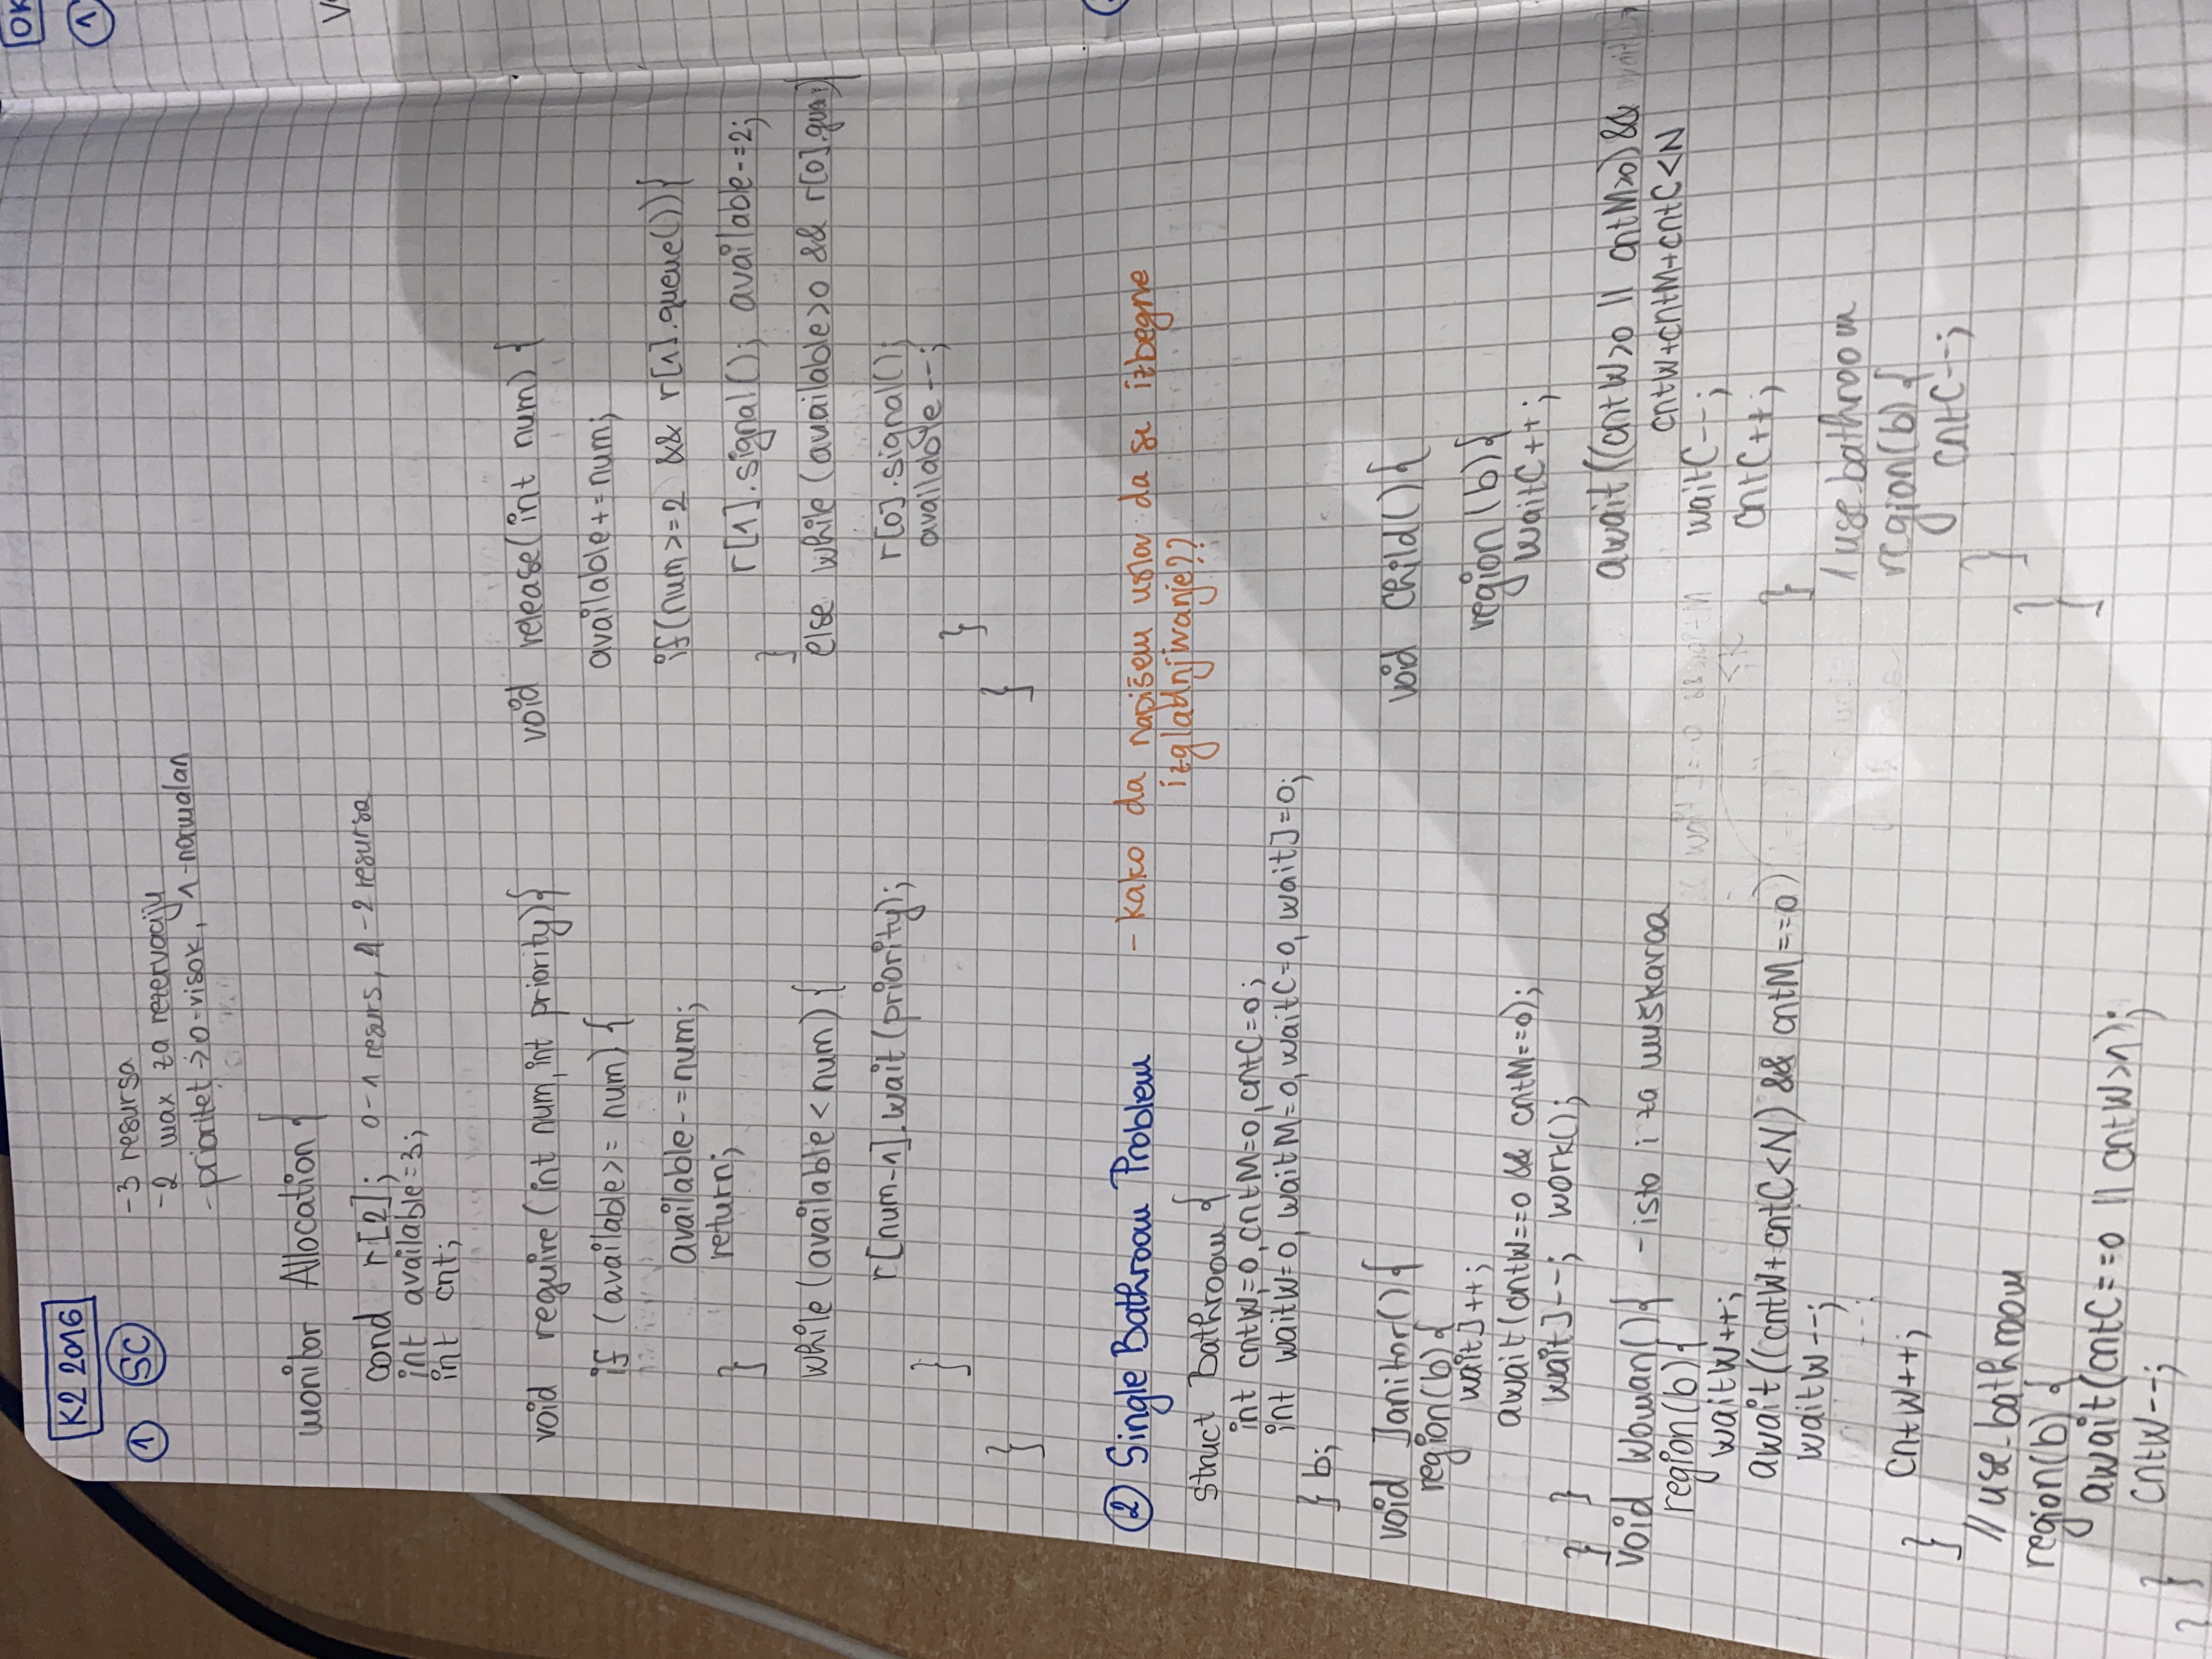 K2 2016
OK
① SC
①
-3 resursa
-2 max za rezervaciju
-prioritet → 0-visok, 1-normalan
monitor Allocation {
cond r[2]; 0-1 resurs, 1-2 resursa
int available=3;
int cnt;
void require(int num, int priority){
if (available >= num) {
available-=num;
return;
}
while (available < num) {
r[num-1].wait(priority);
}
}
void release(int num) {
available+=num;
if(num>=2 && r[1].queue()){
r[1].signal(); available-=2;
}
else while (available>0 && r[0].queue()){
r[0].signal();
available--;
}
}
② Single Bathroom Problem
-kako da napišem uslov da se izbegne
izgladnjivanje??
struct Bathroom {
int cntW=0, cntM=0, cntC=0;
int waitW=0, waitM=0, waitC=0, waitJ=0;
} b;
void Janitor() {
region(b) {
waitJ++;
await(cntW==0 && cntM==0);
waitJ--; work();
} }
void Woman(){ -isto i za muškarca
region(b) {
waitW++;
await((cntW+cntC<N) && cntM==0)
waitW--;
cntW++;
}
//use_bathroom
region(b) {
await(cntC==0 || cntW>1);
cntW--;
}
}
void Child() {
region(b){
waitC++;
await((cntW>0 || cntM>0) &&
cntW+cntM+cntC<N
waitC--;
cntC++;
}
/use_bathroom
region(b) {
cntC--;
}
}